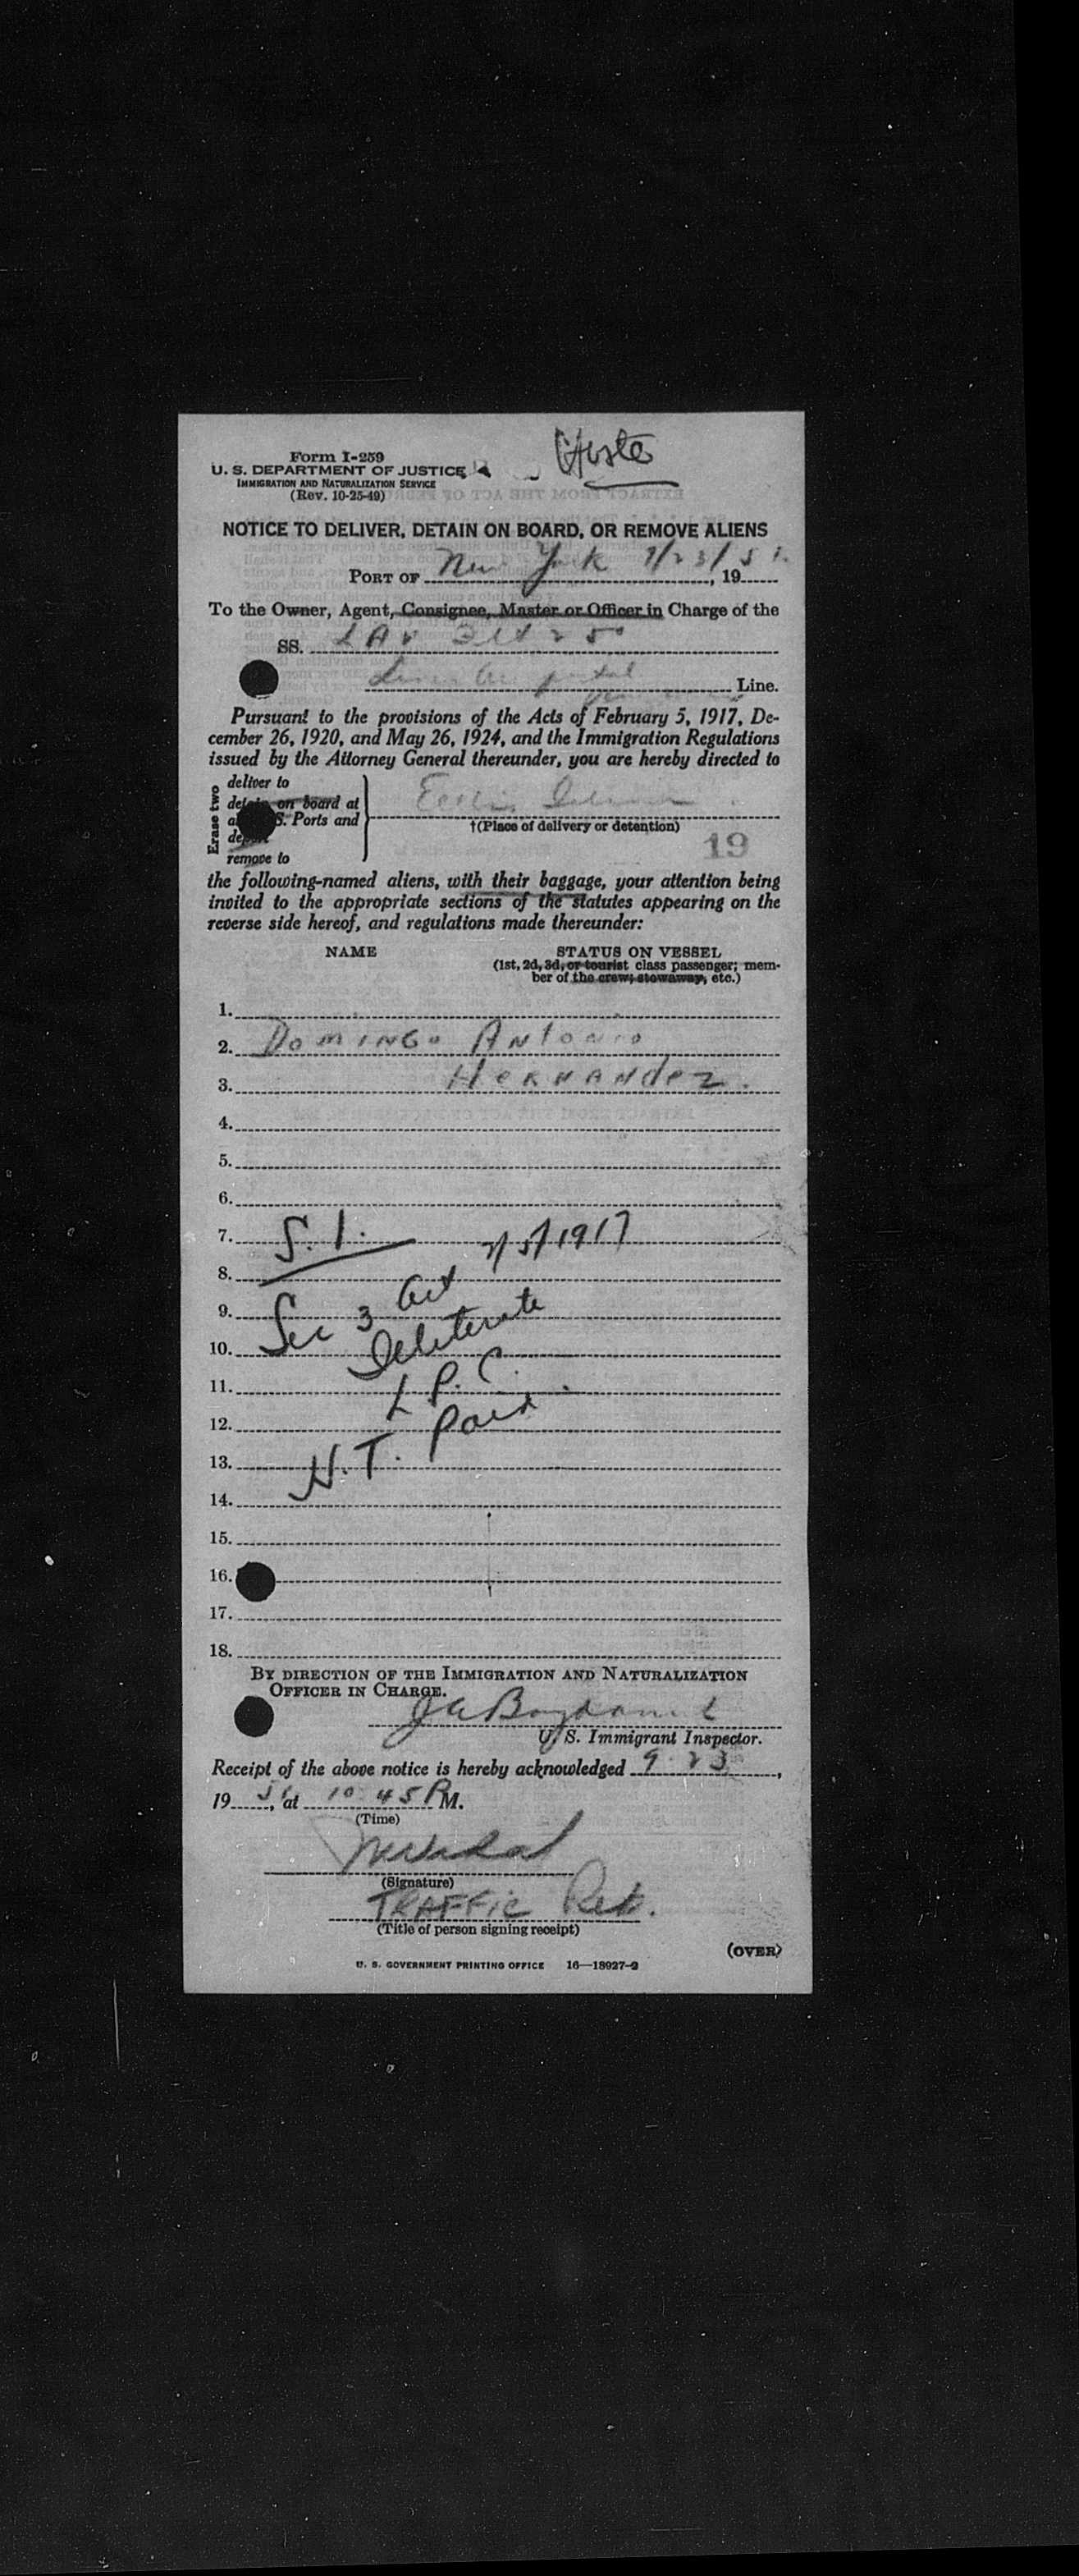 Form I-259
U. S. DEPARTMENT OF JUSTICE
IMMIGRATION AND NATURALIZATION SERVICE
(Rev. 10-25-49)
NOTICE TO DELIVER, DETAIN ON BOARD, OR REMOVE ALIENS
PORT OF New York 9/23/51, 19
To the Owner, Agent, Consignee, Master or Officer in Charge of the
SS. LAV 250
Line.
Pursuant to the provisions of the Acts of February 5, 1917, De-
cember 26, 1920, and May 26, 1924, and the Immigration Regulations
issued by the Attorney General thereunder, you are hereby directed to
Erase two
deliver to
detain on board at
S. Ports and
remove to
†(Place of delivery or detention)
19
the following-named aliens, with their baggage, your attention being
invited to the appropriate sections of the statutes appearing on the
reverse side hereof, and regulations made thereunder:
NAME STATUS ON VESSEL
(1st, 2d, 3d, or tourist class passenger; mem-
ber of the crew; stowaway, etc.)
1.
2. DOMINGO ANTONIO
3. HERNANdez.
4.
5.
6.
7. S. I. 2/5/1917
8.
9. Sec 3 Act
10. Illiterate
11. L P. C.
12. Paid
13. H.T.
14.
15.
16.
17.
18.
BY DIRECTION OF THE IMMIGRATION AND NATURALIZATION
OFFICER IN CHARGE.
U. S. Immigrant Inspector.
Receipt of the above notice is hereby acknowledged 9 23,
1951, at 10 45 PM.
(Time)
(Signature)
TRAFFIC Rep.
(Title of person signing receipt)
(OVER)
U. S. GOVERNMENT PRINTING OFFICE 16—18927-2